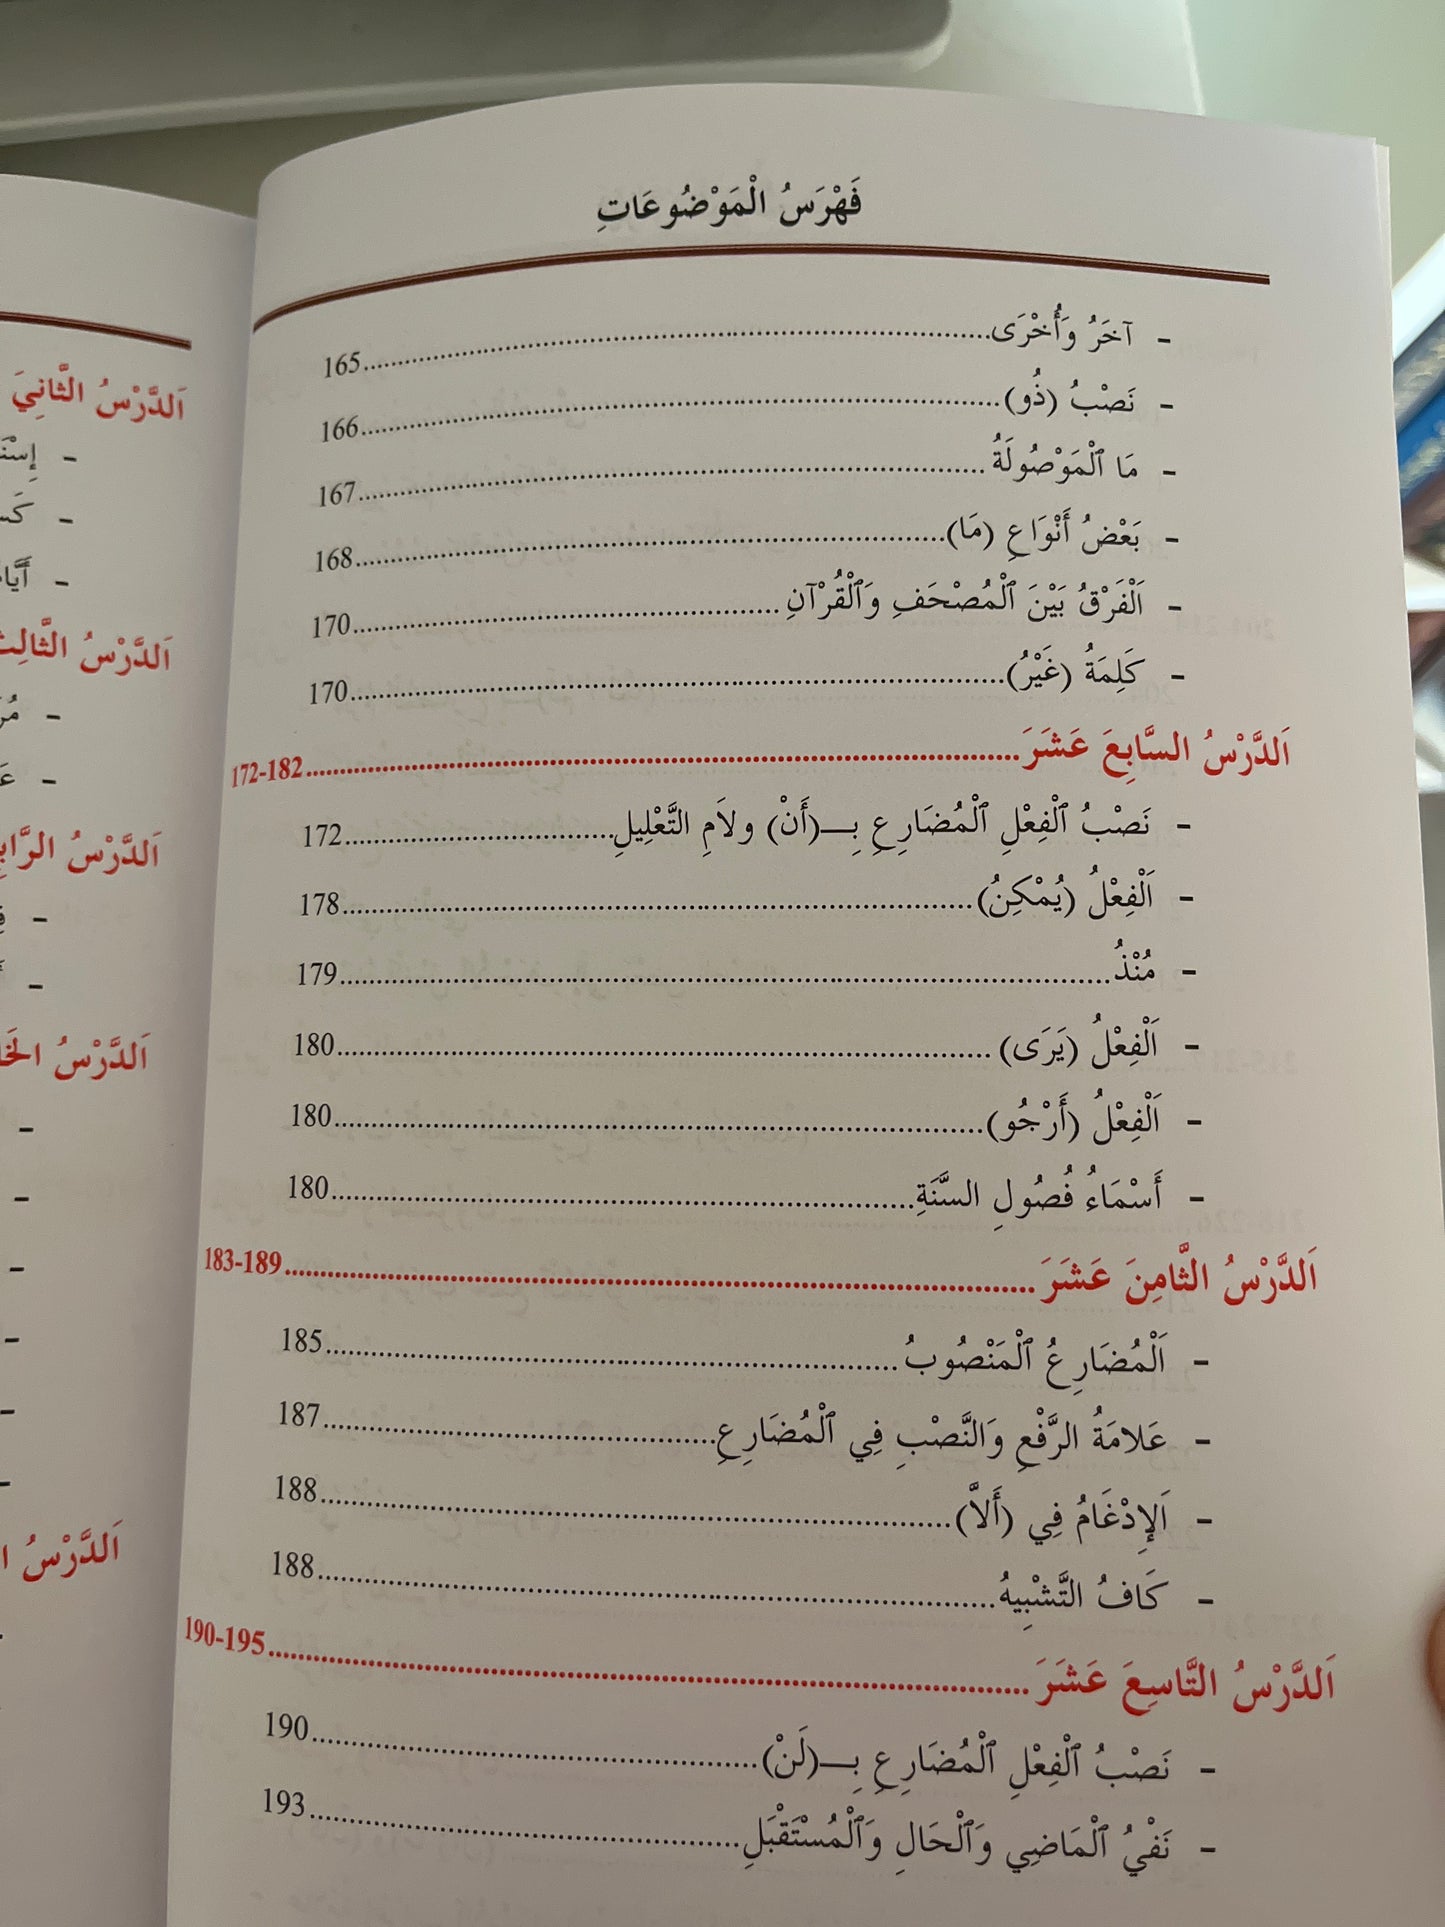 فَهْرَسُ الْمَوْضُوعَاتِ
- آخَرُ وَأُخْرَى........................165
- نَصْبُ (ذُو)........................166
- مَا ٱلْمَوْصُولَةُ........................167
- بَعْضُ أَنْوَاعِ (مَا)........................168
- اَلْفَرْقُ بَيْنَ ٱلْمُصْحَفِ وَٱلْقُرْآنِ........................170
- كَلِمَةُ (غَيْرُ)........................170
اَلدَّرْسُ السَّابِعَ عَشَرَ........................172-182
- نَصْبُ ٱلْفِعْلِ ٱلْمُضَارِعِ بِـ(أَنْ) ولاَمِ التَّعْلِيلِ........................172
- اَلْفِعْلُ (يُمْكِنُ)........................178
- مُنْذُ........................179
- اَلْفِعْلُ (يَرَى)........................180
- اَلْفِعْلُ (أَرْجُو)........................180
- أَسْمَاءُ فُصُولِ السَّنَةِ........................180
اَلدَّرْسُ الثَّامِنَ عَشَرَ........................183-189
- اَلْمُضَارِعُ ٱلْمَنْصُوبُ........................185
- عَلامَةُ الرَّفْعِ وَالنَّصْبِ فِي ٱلْمُضَارِعِ........................187
- اَلإِدْغَامُ فِي (أَلاَّ)........................188
- كَافُ التَّشْبِيهُ........................188
اَلدَّرْسُ التَّاسِعَ عَشَرَ........................190-195
- نَصْبُ ٱلْفِعْلِ ٱلْمُضَارِعِ بِـ(لَنْ)........................190
- نَفْيُ ٱلْمَاضِي وَٱلْحَالِ وَٱلْمُسْتَقْبَلِ........................193
اَلدَّرْسُ الثَّانِيَ
اَلدَّرْسُ
اَلدَّرْسُ
اَلدَّرْسُ
اَلدَّرْسُ